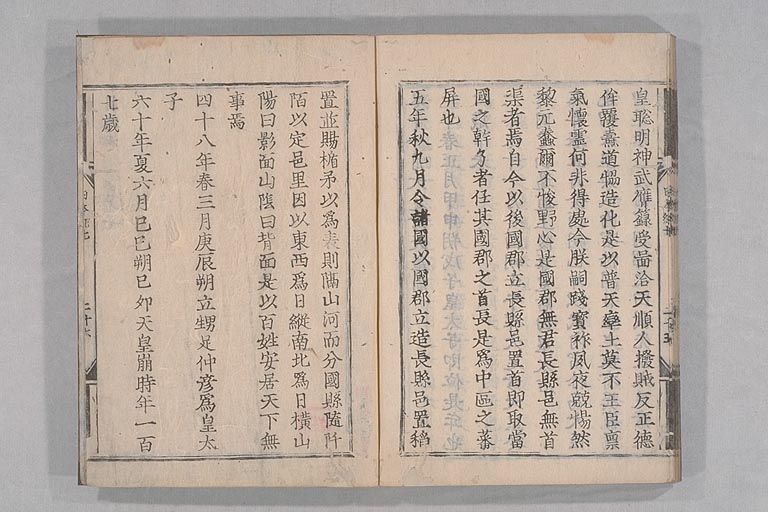 皇聡明神武膺籙受啚洽天順人撥賊反正德
侔覆燾道協造化是以普天率土莫不王臣禀
氣懷靈何非得處今朕嗣踐寳祚夙夜兢惕然
黎元蠢爾不悛野心是國郡無君長縣邑無首
渠者焉自今以後國郡立長縣邑置首即取當
國之幹了者任其國郡之首長是爲中區之蕃
屏也
五年秋九月令諸國以國郡立造長縣邑置稻
置並賜楯矛以爲表則隔山河而分國縣隨阡
陌以定邑里因以東西爲日縱南北爲日橫山
陽曰影面山陰曰背面是以百姓安居天下無
事焉
四十八年春三月庚辰朔立甥足仲彦爲皇太
子
六十年夏六月己巳朔己卯天皇崩時年一百
七歲